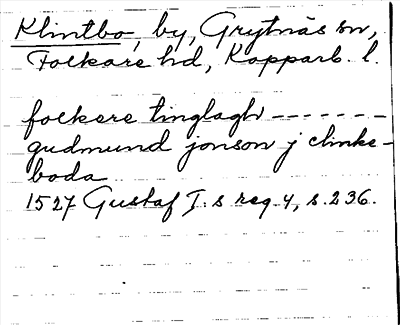 Klintbo, by, Grytnäs sn,
Folkare hd, Kopparb. l.
folkere tinglagh -------
gudmund jonson j clinke-
boda
1527 Gustaf I:s reg. 4, s. 236.